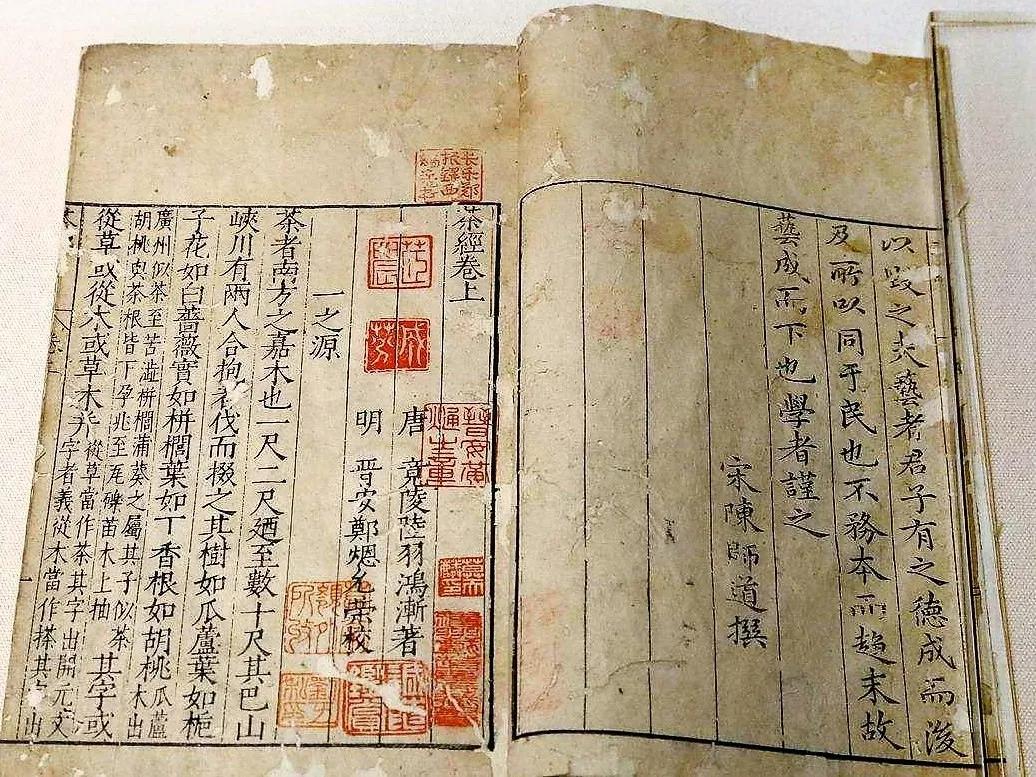 以毀之夫藝者君子有之德成而後
及所以同于民也不務本而趨末故
藝成而下也學者謹之
宋陳師道撰
茶經卷上
唐 竟陵陸羽鴻漸著
明 晉安鄭熜允榮校
一之源
茶者南方之嘉木也一尺二尺廼至數十尺其巴山
峽川有兩人合抱者伐而掇之其樹如瓜蘆葉如梔
子花如白薔薇實如栟櫚葉如丁香根如胡桃瓜蘆木出
廣州似茶至苦澁栟櫚蒲葵之屬其子似茶胡桃與茶根皆下孕兆至瓦礫苗木上抽其字或
從草或從木或草木并從草當作茶其字出開元文字者義從木當作搽其字出